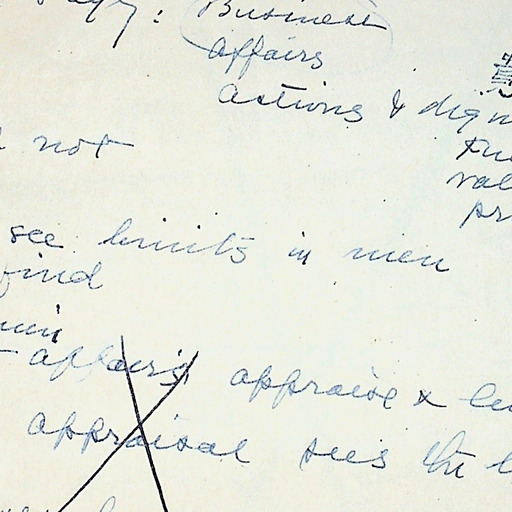 : Business
affairs
actions & dign
not
val
pr
see limits in men
find
affairs appraise &
appraisal sees the